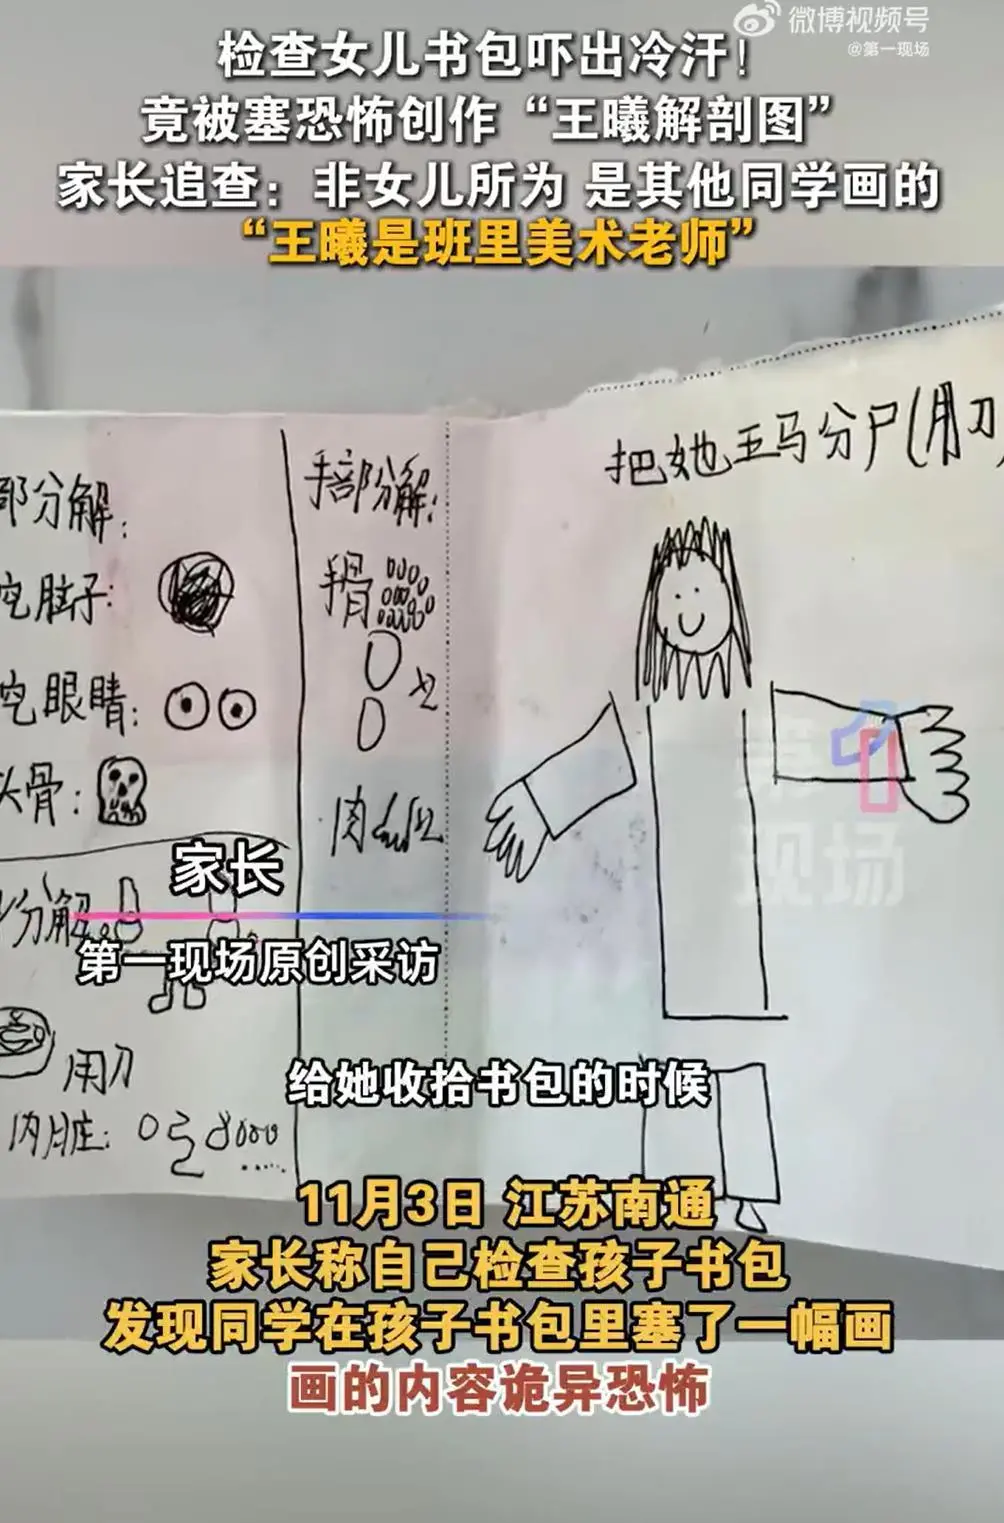 微博视频号
@第一现场
检查女儿书包吓出冷汗！
竟被塞恐怖创作“王曦解剖图”
家长追查：非女儿所为 是其他同学画的
“王曦是班里美术老师”
把她五马分尸(用刀)
部分解：
挖脑子：
挖眼睛：
头骨：
手部分解：
手骨
x2
肉
x2
分解
用刀
内脏：
第1现场
家长
第一现场原创采访
给她收拾书包的时候
11月3日 江苏南通
家长称自己检查孩子书包
发现同学在孩子书包里塞了一幅画
画的内容诡异恐怖